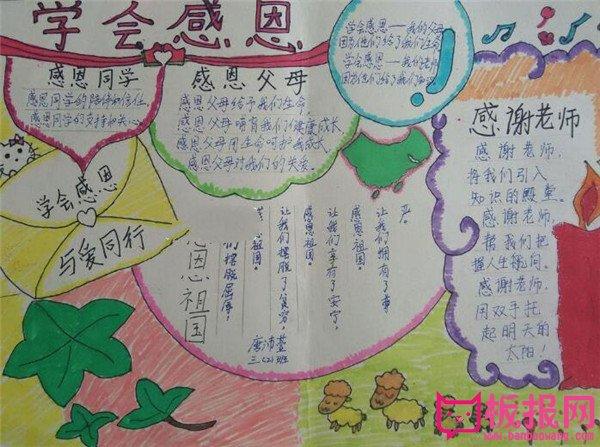 学会感恩
感恩同学
感恩同学的陪伴和信任
感恩同学的支持和关心
感恩父母
感恩父母给予我们生命,
感恩父母哺育我们健康成长,
感恩父母用生命呵护我成长,
感恩父母对我们的关爱。
学会感恩——我的父母
因为他们给了我们生命
学会感恩
因为他们给了我们
感谢老师
感谢老师,
将我们引入
知识的殿堂。
感谢老师,
帮我们把
握人生航向。
感谢老师,
用双手托
起明天的
太阳!
学会感恩
与爱同行
感恩祖国
让我们拥有了尊
严。
感恩祖国。
让我们享有了安宁,
感恩祖国。
让我们摆脱了贫穷,
祖国。
们摆脱屈辱,
唐沛萱
三(2)班
板报网
www.banbaowang.com